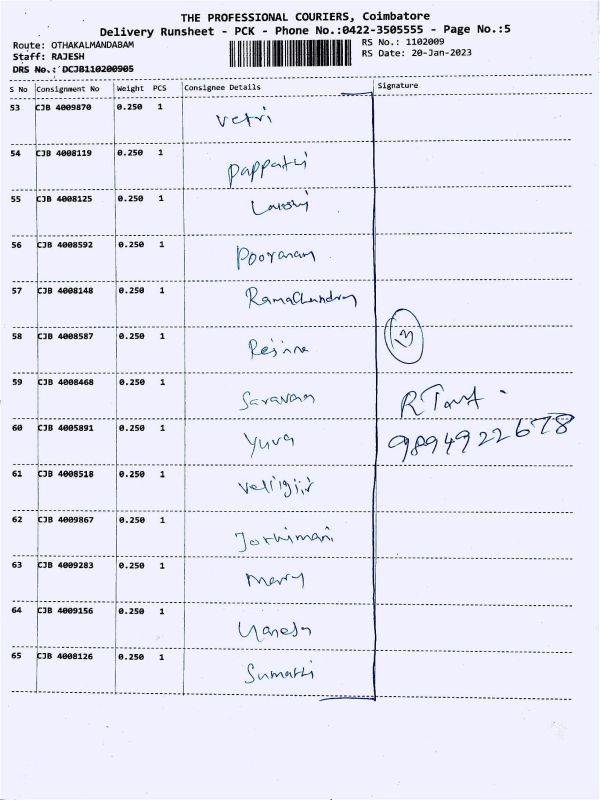 THE PROFESSIONAL COURIERS, Coimbatore
Delivery Runsheet - PCK - Phone No.:0422-3505555 - Page No.:5
Route: OTHAKALMANDABAM
RS No.: 1102009
Staff: RAJESH
RS Date: 20-Jan-2023
DRS No.: DCJB110200905
S No Consignment No Weight PCS Consignee Details Signature
53 CJB 4009870 0.250 1 Vetri
54 CJB 4008119 0.250 1 Pappathi
55 CJB 4008125 0.250 1
56 CJB 4008592 0.250 1 Pooranam
57 CJB 4008148 0.250 1 Ramachandran
58 CJB 4008587 0.250 1
59 CJB 4008468 0.250 1 Saravan
60 CJB 4005891 0.250 1 Yuva 9894922678
61 CJB 4008518 0.250 1
62 CJB 4009867 0.250 1 Jothimani
63 CJB 4009283 0.250 1 Mary
64 CJB 4009156 0.250 1
65 CJB 4008126 0.250 1 Sumathi